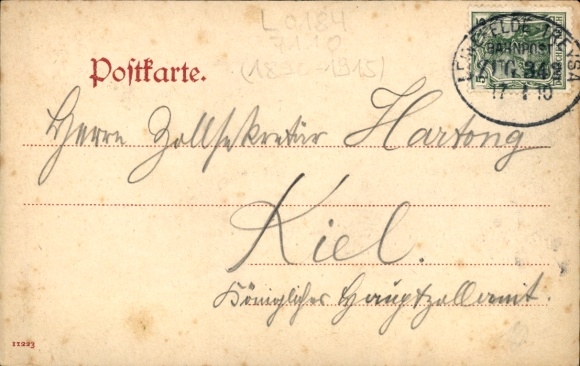 L 0.184
7110
(189 -1915)
Postkarte.
LEINEFELDE TREYSA
BAHNPOST
ZUG 342
17 1 10
Herrn Zollsekretär Hartong
Kiel.
Königliches Hauptzollamt.
11223